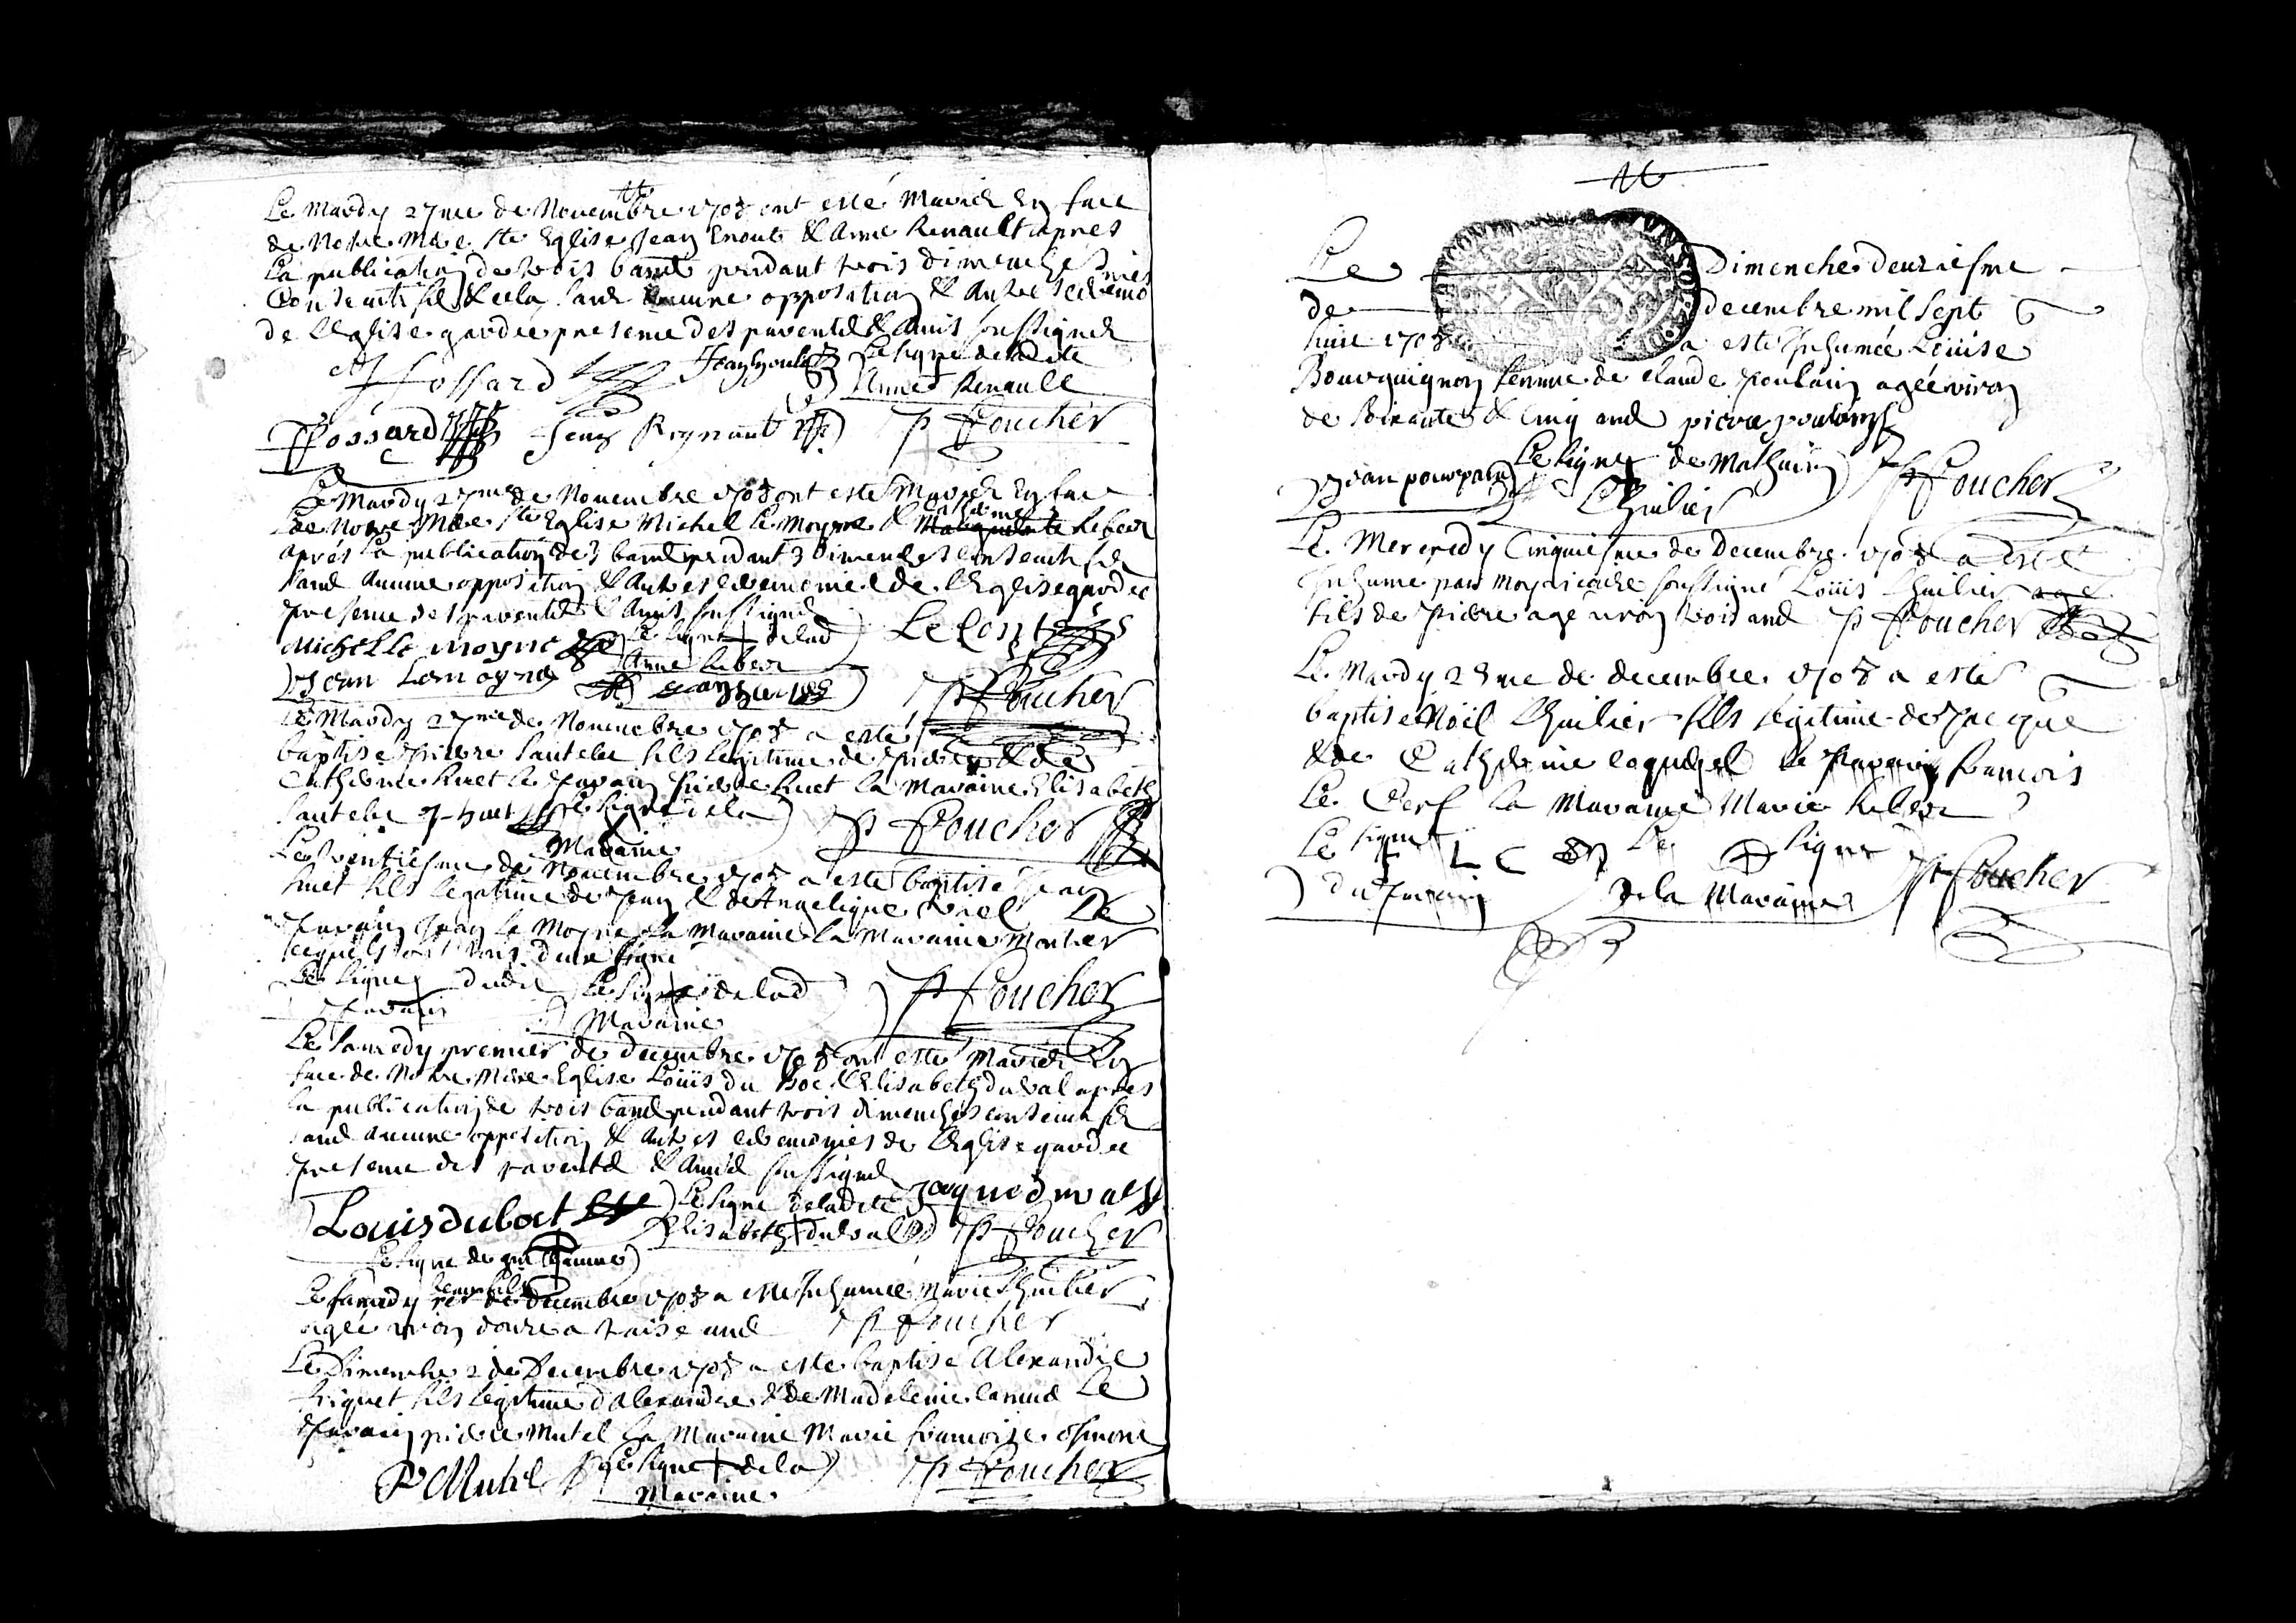 Le Mardy 27me de Novembre 1708 ont esté Mariez En face
de Notre Mere ste Eglise Jean Enoult & Anne Renault apres
La publication de trois bans pendant trois dimenches
Consecutifs & cela sans aucune opposition & Autres ceremonies
de l'Eglise gardee presence des parents & Amis soussignez
Fossard Jean Le signe de ladite
Anne Renault
Fossard Jean Regnault P Foucher
Le Mardy 27me de Novembre 1708 ont esté Mariez En face
de Notre Mere ste Eglise Michel le Moyne & Leber
Après La publication de 3 bans pendant 3 dimenches consecutifs
sans Aucune opposition & Autres ceremonies de l'Eglise gardee
presence des parents & Amis soussignez
Michel Le moyne Le signe de lad Le Conte
Anne Leber
Jean Lemoyne P Foucher
Le Mardy 27me de Novembre 1708 a esté
baptisé Pierre Sauteler fils legitime de Pierre & de
Catherine huet Le Parain Pierre huet La Maraine Elisabeth
Sauteler P huet le signe de la P Foucher
Maraine
Le trentiesme de Novembre 1708 a esté baptisé Jean
huet fils legitime de Jean & de Angelique Viel Le
Parain Jean Le Moyne La Maraine la Maraine
signé
Le signe dudit Le signe de lad P Foucher
Parain Maraine
Le Samedy premier de Decembre 1708 ont esté Mariez En
face de Notre Mere Eglise Loüis du Boc & Elisabeth duval apres
la publication de trois bans pendant trois dimenches consecutifs
sans aucune opposition & Autres ceremonies de l'Eglise gardee
presence des parents & Amis soussignez
Louis duboct Le signe de ladite Jaque duval
Elisabeth duval P Foucher
Le signe de
Le Samedy de Decembre 1708 a esté Inhumée Marie Lhuilier
agée viron douze a traise ans P Foucher
Le Dimenche 2 de Decembre 1708 a esté baptisé Alexandre
friquet fils legitime d'Alexandre & de Madeleine Le
Parain pierre Mutel La Maraine Marie francoise osmont
P Mutel Le signe de la P Foucher
Maraine
16
Le Dimenche deuxiesme
de decembre mil sept
huit 1708 a esté Inhumée Loüise
Bourguignon femme de Claude Poulain agée viron
de soixante & cinq ans pierre poulain
Jean pourpain Le signe de Mathurin P Foucher
Lhuilier
Le Mercredy Cinquiesme de Decembre 1708 a esté
Inhumé par Moy vicaire soussigné Loüis Lhuilier age
fils de Pierre agé viron trois ans P Foucher
Le Mardy 25me de decembre 1708 a esté
baptisé Nöil Lhuilier fils legitime de Jacque
& de Catherine le Parain francois
Le Cerf la Maraine Marie Leber
Le signe L C Le signe
du Parain de la Maraine P Foucher